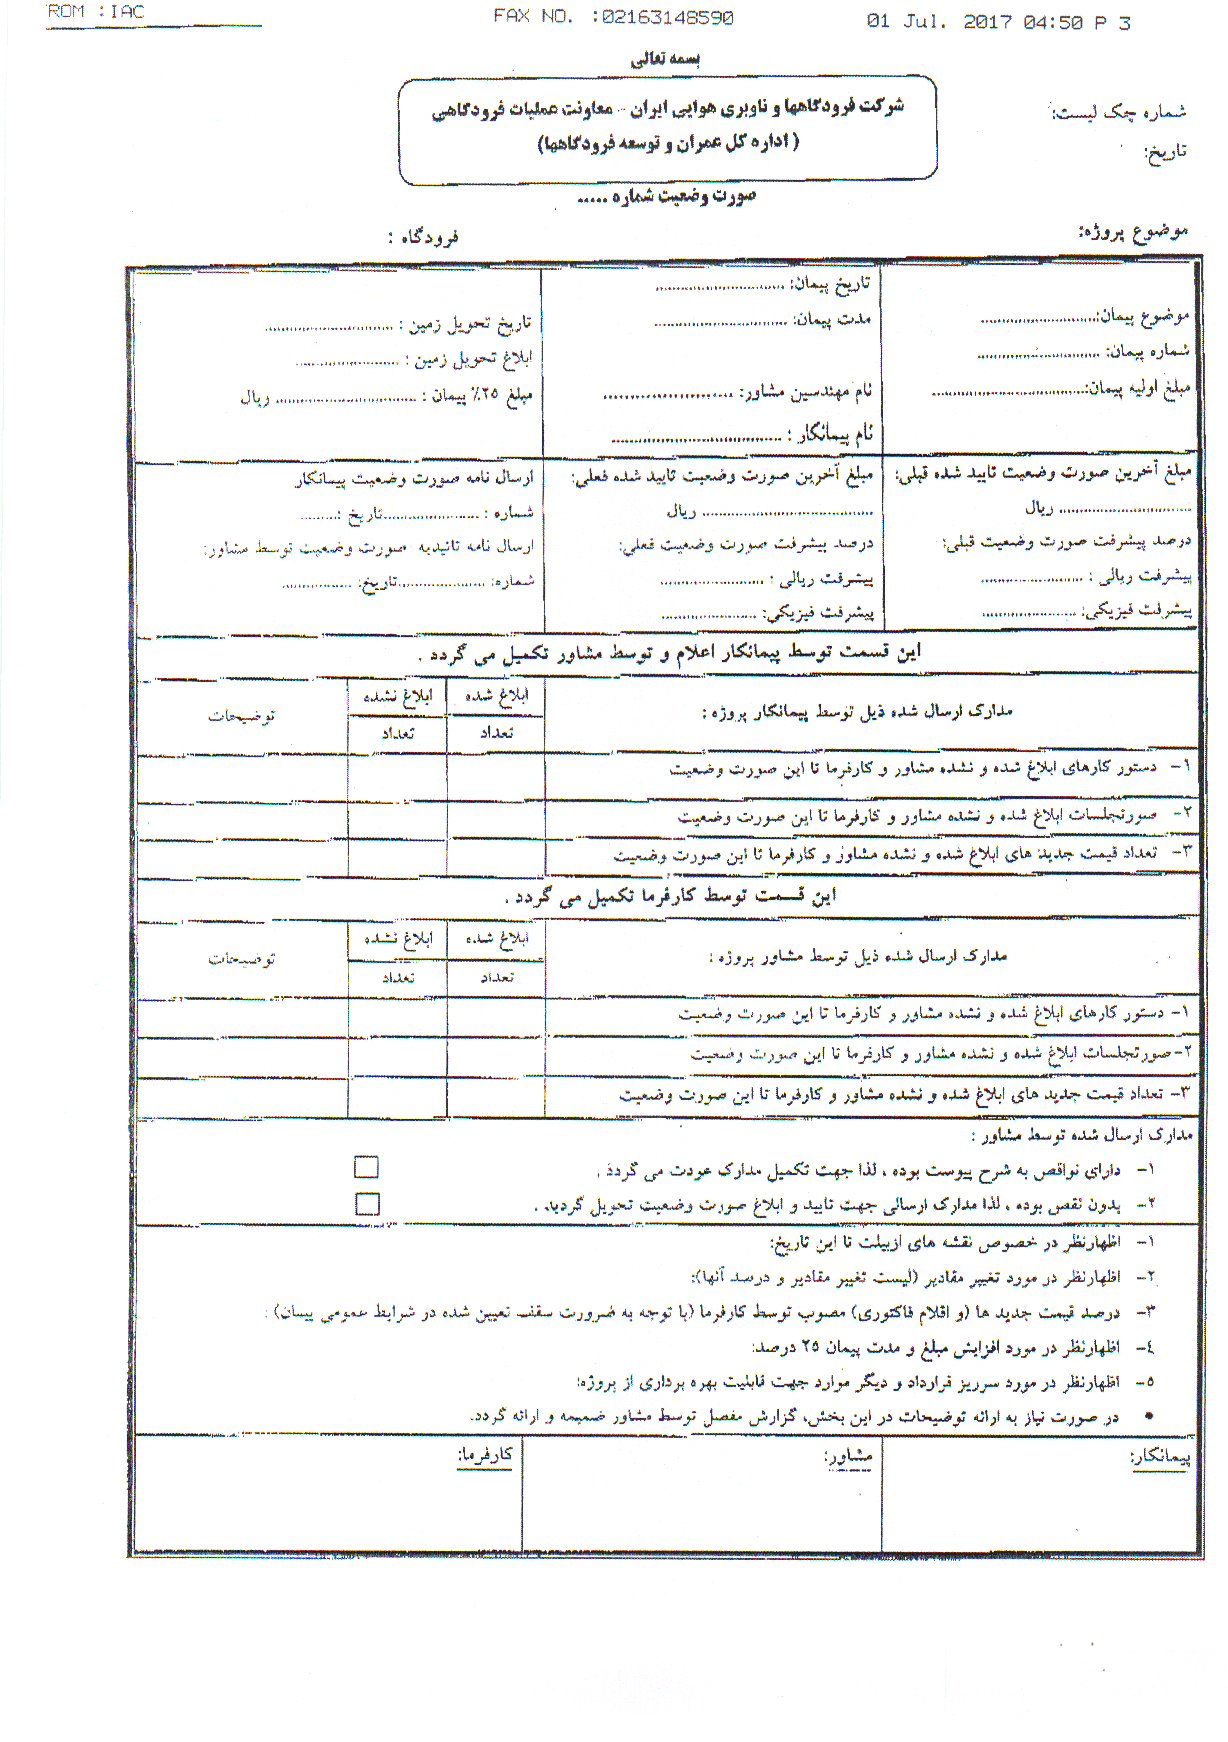 ROM :IAC
FAX NO. :02163148590
01 Jul. 2017 04:50 P 3
بسمه تعالی
شرکت فرودگاهها و ناوبری هوایی ایران - معاونت عملیات فرودگاهی
( اداره کل عمران و توسعه فرودگاهها)
شماره چک لیست:
تاریخ:
صورت وضعیت شماره .....
موضوع پروژه:
فرودگاه :
موضوع پیمان:........................
شماره پیمان: ........................
مبلغ اولیه پیمان:................................
تاریخ پیمان: ..........................
مدت پیمان: ...........................
نام مهندسین مشاور: ........................
نام پیمانکار : ................................
تاریخ تحویل زمین : ..........................
ابلاغ تحویل زمین : .....................
مبلغ ۲۵٪ پیمان : ............................ ریال
مبلغ آخرین صورت وضعیت تایید شده قبلی:
........................... ریال
درصد پیشرفت صورت وضعیت قبلی:
پیشرفت ریالی : .....................
پیشرفت فیزیکی: ...................
مبلغ آخرین صورت وضعیت تایید شده فعلی:
................................... ریال
درصد پیشرفت صورت وضعیت فعلی:
پیشرفت ریالی : .....................
پیشرفت فیزیکی: ...................
ارسال نامه صورت وضعیت پیمانکار
شماره : ....................تاریخ :........
ارسال نامه تائیدیه صورت وضعیت توسط مشاور:
شماره: ..................تاریخ: ..............
این قسمت توسط پیمانکار اعلام و توسط مشاور تکمیل می گردد .
مدارک ارسال شده ذیل توسط پیمانکار پروژه :
ابلاغ شده
ابلاغ نشده
توضیحات
تعداد
تعداد
۱- دستور کارهای ابلاغ شده و نشده مشاور و کارفرما تا این صورت وضعیت
۲- صورتجلسات ابلاغ شده و نشده مشاور و کارفرما تا این صورت وضعیت
۳- تعداد قیمت جدید های ابلاغ شده و نشده مشاور و کارفرما تا این صورت وضعیت
این قسمت توسط کارفرما تکمیل می گردد .
مدارک ارسال شده ذیل توسط مشاور پروژه :
ابلاغ شده
ابلاغ نشده
توضیحات
تعداد
تعداد
۱- دستور کارهای ابلاغ شده و نشده مشاور و کارفرما تا این صورت وضعیت
۲-صورتجلسات ابلاغ شده و نشده مشاور و کارفرما تا این صورت وضعیت
۳- تعداد قیمت جدید های ابلاغ شده و نشده مشاور و کارفرما تا این صورت وضعیت
مدارک ارسال شده توسط مشاور :
۱- دارای نواقص به شرح پیوست بوده ، لذا جهت تکمیل مدارک عودت می گردد .
۲- بدون نقص بوده ، لذا مدارک ارسالی جهت تایید و ابلاغ صورت وضعیت تحویل گردید .
۱- اظهارنظر در خصوص نقشه های ازبیلت تا این تاریخ:
۲- اظهارنظر در مورد تغییر مقادیر (لیست تغییر مقادیر و درصد آنها):
۳- درصد قیمت جدید ها (و اقلام فاکتوری) مصوب توسط کارفرما (با توجه به ضرورت سقف تعیین شده در شرایط عمومی پیمان) :
٤- اظهارنظر در مورد افزایش مبلغ و مدت پیمان ۲۵ درصد:
٥- اظهارنظر در مورد سرریز قرارداد و دیگر موارد جهت قابلیت بهره برداری از پروژه:
• در صورت نیاز به ارائه توضیحات در این بخش، گزارش مفصل توسط مشاور ضمیمه و ارائه گردد.
پیمانکار:
مشاور:
کارفرما: